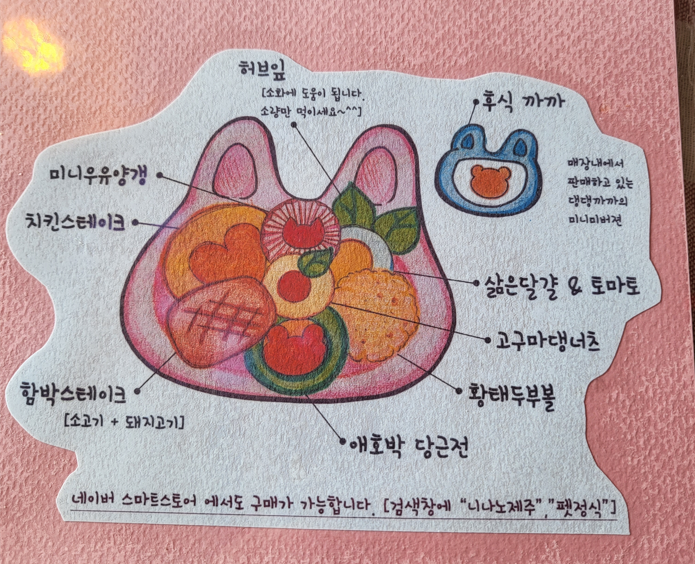 허브잎
[소화에 도움이 됩니다.
소량만 먹이세요~^^]
후식 까까
매장내에서
판매하고 있는
댕댕까까의
미니미버젼
미니우유양갱
치킨스테이크
삶은달걀 & 토마토
고구마댕너츠
함박스테이크
[소고기 + 돼지고기]
황태두부볼
애호박 당근전
네이버 스마트스토어 에서도 구매가 가능합니다. [검색창에 "니나노제주","펫정식"]